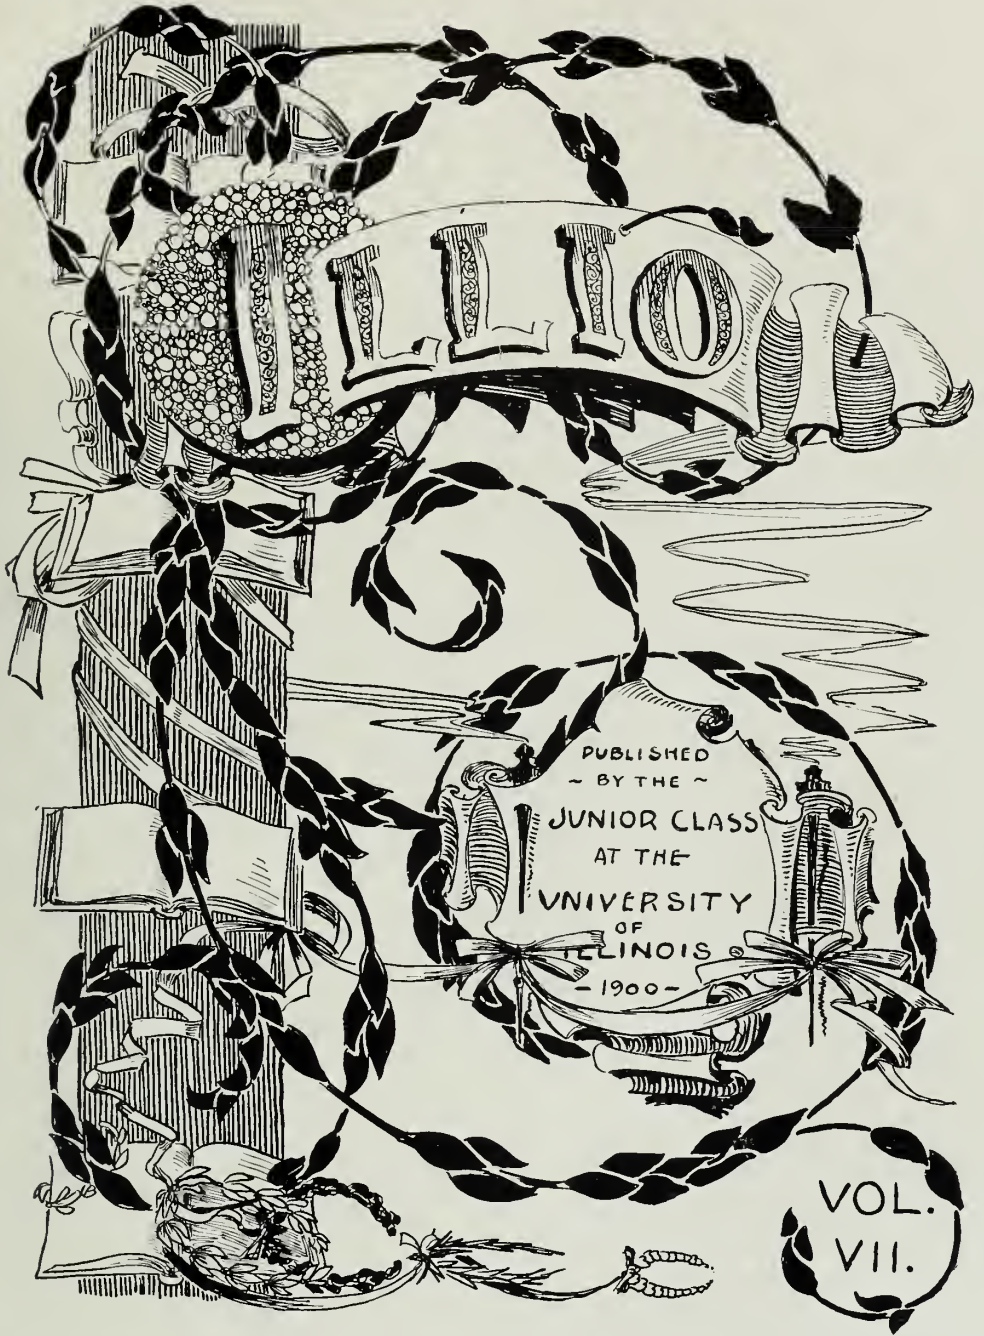 ILLIO
PUBLISHED
~ BY THE ~
JUNIOR CLASS
AT THE
VNIVERSITY
OF
ILLINOIS
-1900-
VOL.
VII.